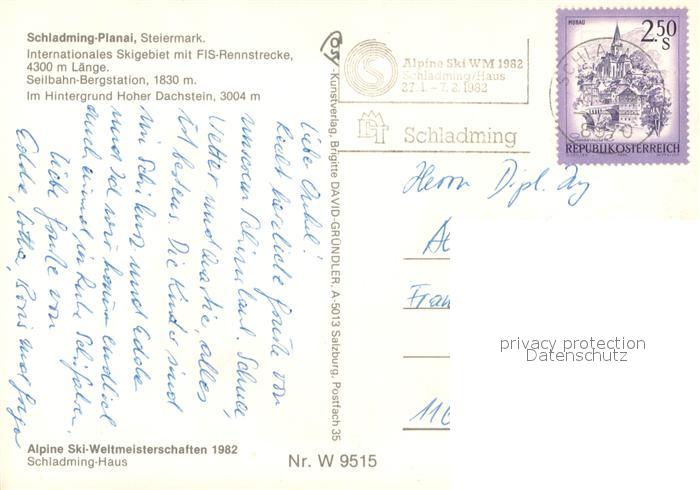 Schladming-Planai, Steiermark.
Internationales Skigebiet mit FIS-Rennstrecke,
4300 m Länge.
Seilbahn-Bergstation, 1830 m.
Im Hintergrund Hoher Dachstein, 3004 m
Liebe Onkel!
Recht herzliche Grüße von
unserem Schiurlaub. Schnee,
Wetter und Quartier, alles
ist bestens. Die Kinder sind
im Schikurs und Edda
und ich wir kommen endlich
auch einmal in Ruhe Schifahren.
Liebe Grüße von
Edda,
Alpine Ski-Weltmeisterschaften 1982
Schladming-Haus
Nr. W 9515
-Kunstverlag, Brigitte DAVID-GRÜNDLER, A-5013 Salzburg, Postfach 35
Alpine Ski WM 1982
Schladming/Haus
27.1. - 7.2. 1982
Schladming
MURAU
2.50
S
REPUBLIK ÖSTERREICH
Herrn Dipl. Ing
Fran
116
privacy protection
Datenschutz